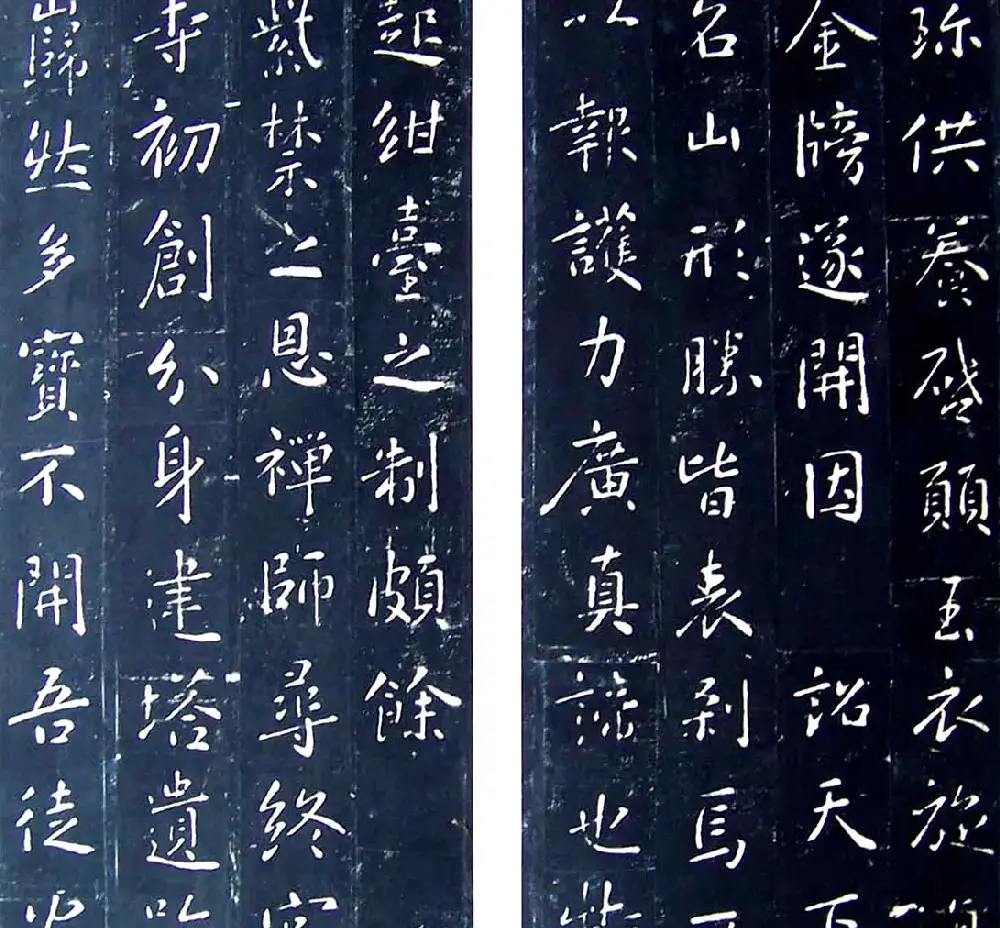 珎供養啓願玉衣旋
金牓遂開因詔天下
名山形勝皆表刹焉
以報護力廣真諦也
起紺臺之制頗餘
紫禁之恩禪師尋終
寺初創分身建塔遺
歸然多寶不開吾徒